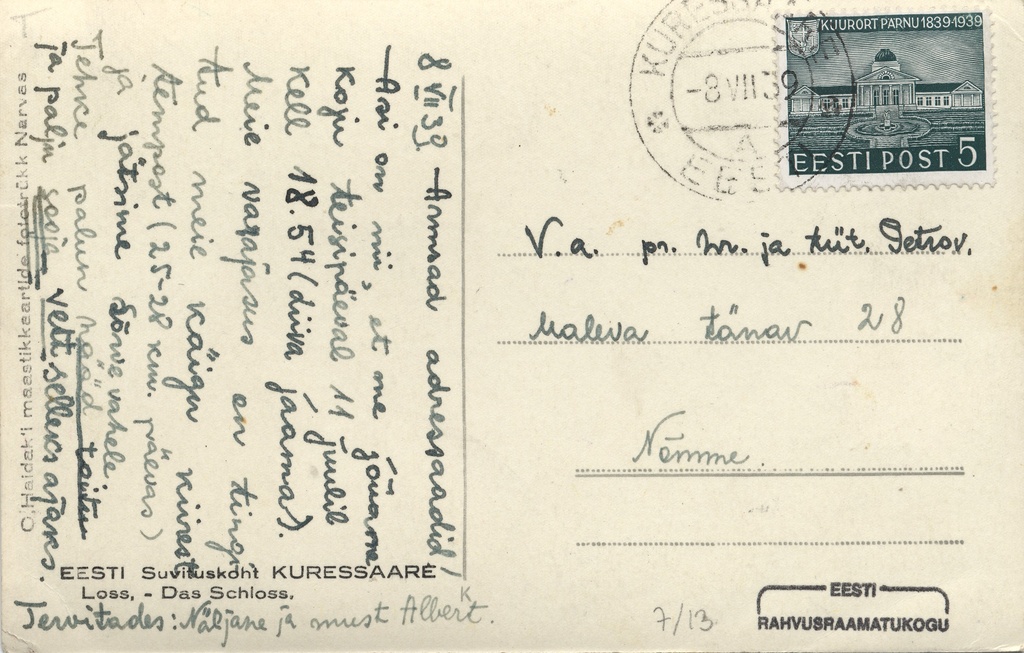 8 VII 39 Armsad adressaadid,
Asi on nii, et me jõuame
koju teisipäeval 11 juulil
kell 18.54 (Liiva jaama).
Meie varajasus on tingi-
tud meie käigu kiirest
tempost (25-28 km. päevas)
ja jätsime Sõrve vahele.
Tehke palun head toitu
ja palju sooja vett selleks ajaks.
EESTI Suvituskoht KURESSAARE
Loss, - Das Schloss.
Tervitades: Näljane ja must Albert K.
O. Haidak'i maastikkaartide fototrükk Narvas
KURESSAARE
-8 VII 39
EESTI
KUURORT PÄRNU 1839-1939
EESTI POST 5
V.a. pr. hr. ja tüt. Petrov.
Maleva tänav 28
Nõmme.
7/13
EESTI
RAHVUSRAAMATUKOGU